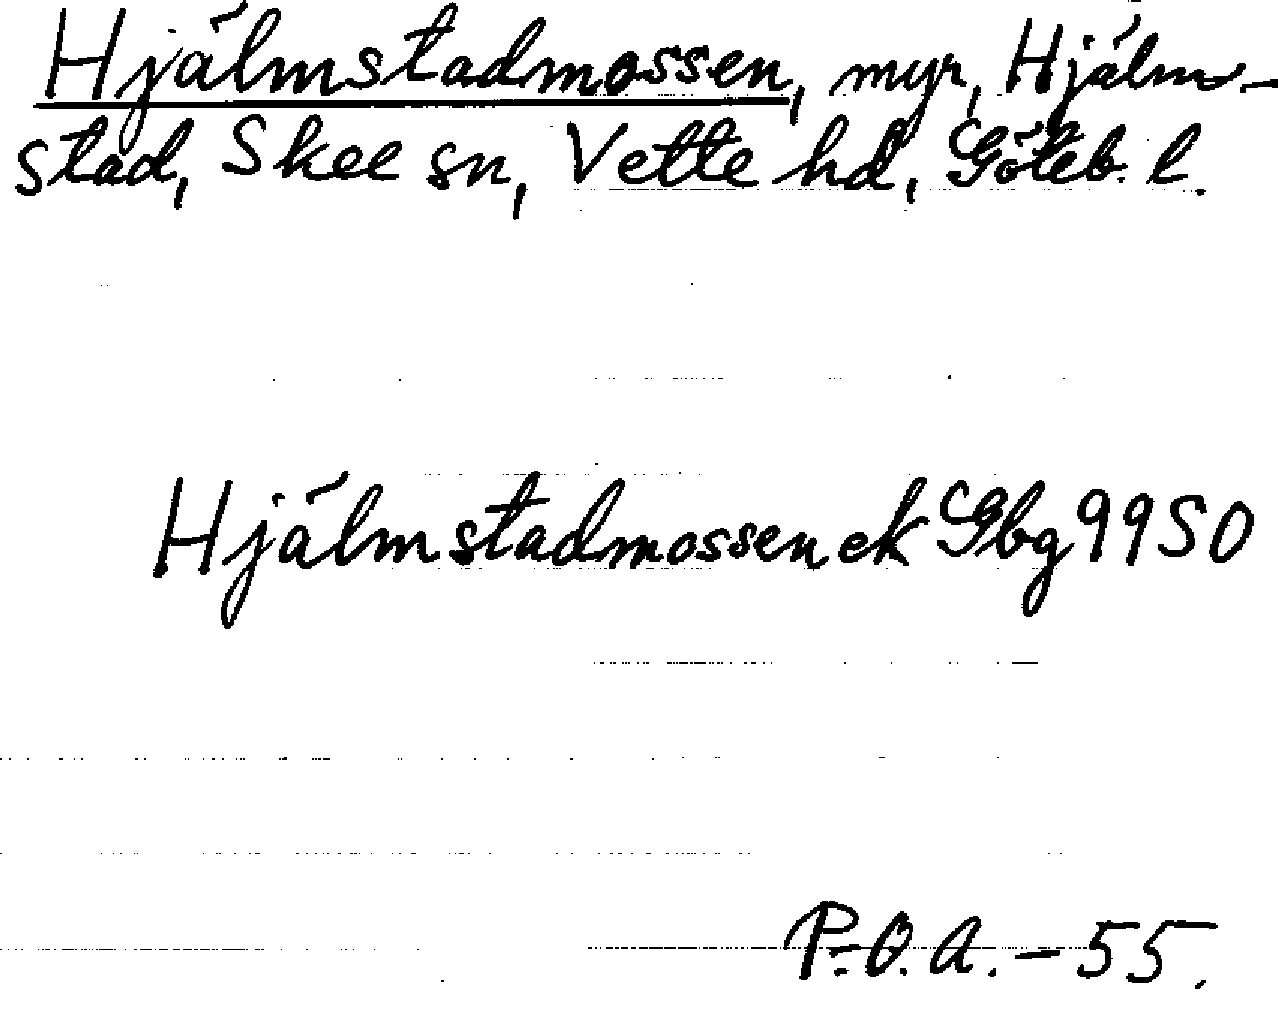 Hjälmstadmossen, myr, Hjälm-
stad, Skee sn, Vette hd, Göteb. l.
Hjälmstadmossen ek Gbg 9950
P.O.A. - 55.